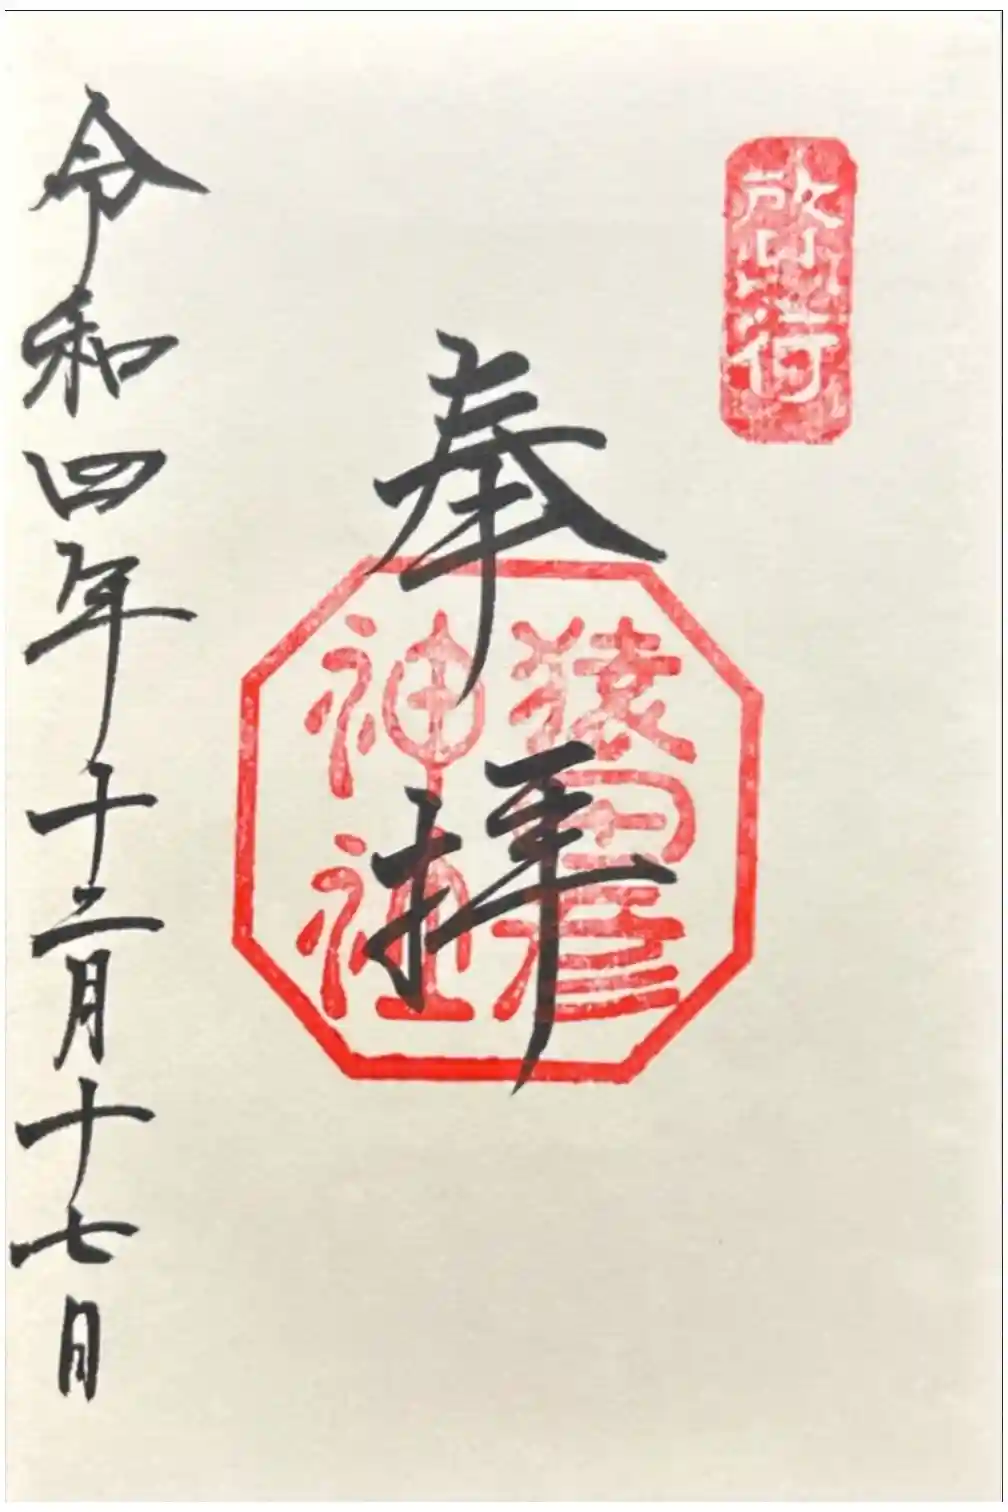 奉拝
猿田彦
神社
令和四年十二月十七日